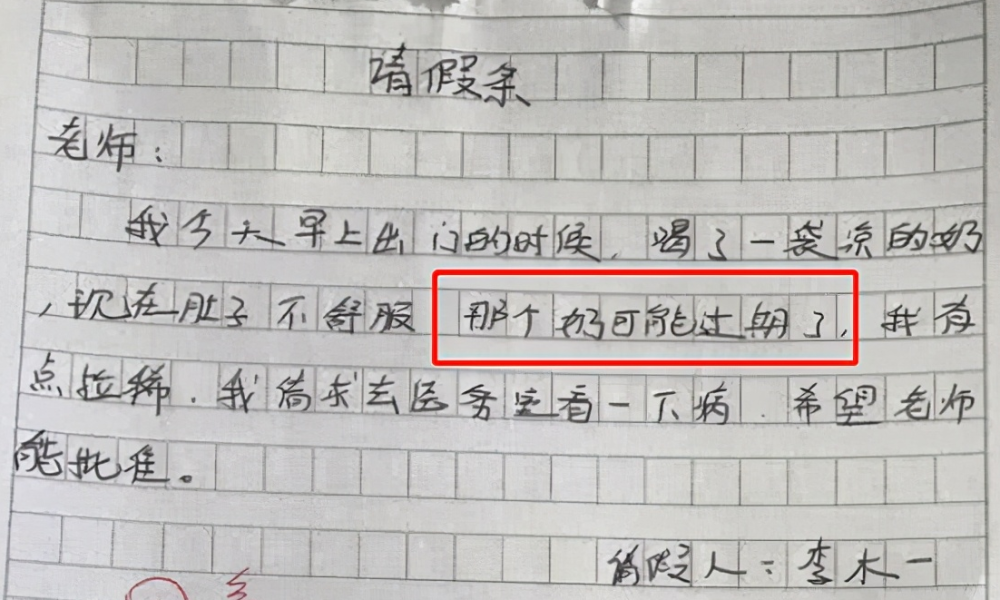 请假条
老师：
我今天早上出门的时候，喝了一袋凉的奶
，现在肚子不舒服 那个奶可能过期了，我有
点拉稀．我请求去医务室看一下病．希望老师
能批准。
请假人：李木一